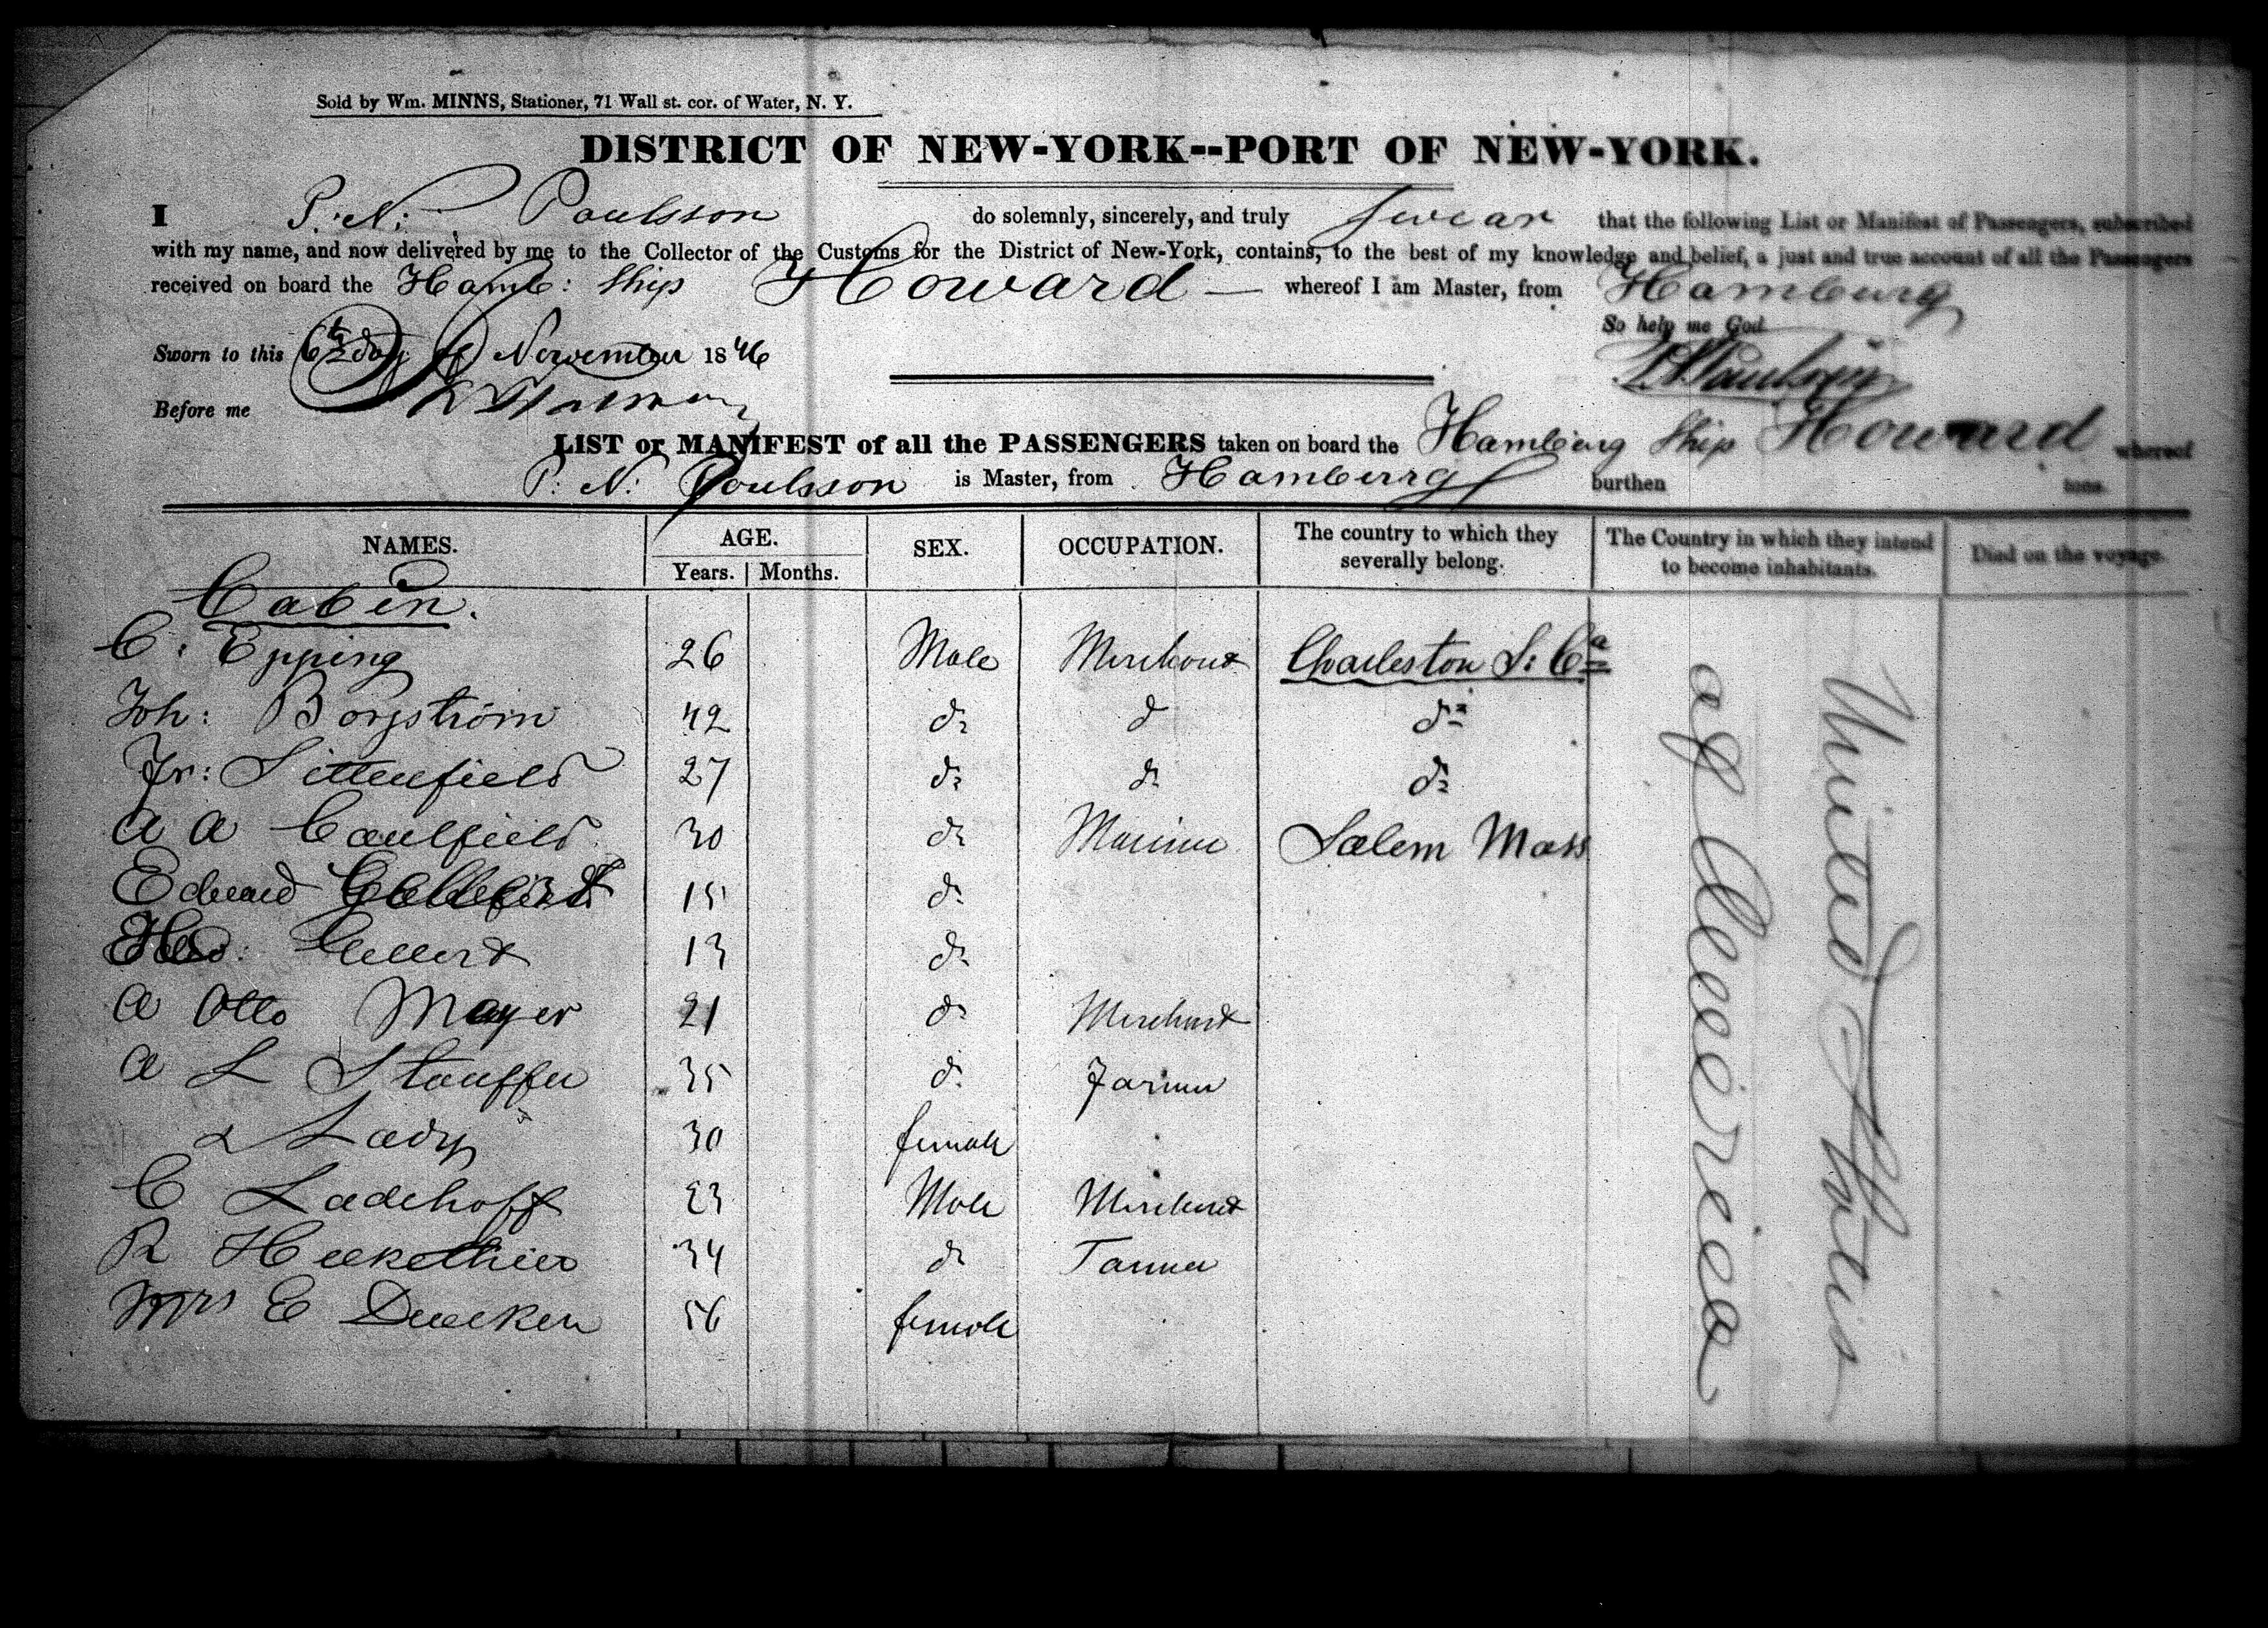 Sold by Wm. MINNS, Stationer, 71 Wall st. cor. of Water, N. Y.
DISTRICT OF NEW-YORK--PORT OF NEW-YORK.
I P. N. Poulsson do solemnly, sincerely, and truly swear that the following List or Manifest of Passengers, subscribed
with my name, and now delivered by me to the Collector of the Customs for the District of New-York, contains, to the best of my knowledge and belief, a just and true account of all the Passengers
received on board the Hamb: Ship Howard whereof I am Master, from Hamburg
So help me God.
Sworn to this 6th day of November 1846
Before me
LIST or MANIFEST of all the PASSENGERS taken on board the Hamburg Ship Howard whereof
P. N. Poulsson is Master, from Hamburg burthen tons.
NAMES. AGE. SEX. OCCUPATION. The country to which they severally belong. The Country in which they intend to become inhabitants. Died on the voyage.
Years. Months.
Cabin.
C. Epping 26 Male Merchant Charleston S: Ca
Joh: Borgström 42 do d do
Fr: Sittenfield 27 do do do
A A Caulfield 30 do Mariner Salem Mass
Edward 15 do
Gellert 13 do
A Otto Mayer 21 do Merchant
A L Stauffer 35 do Farmer
& Lady 30 female
C Ladehoff 23 Male Merchant
R Heckethier 34 do Tanner
Mrs E Duecken 56 female
United States
of America